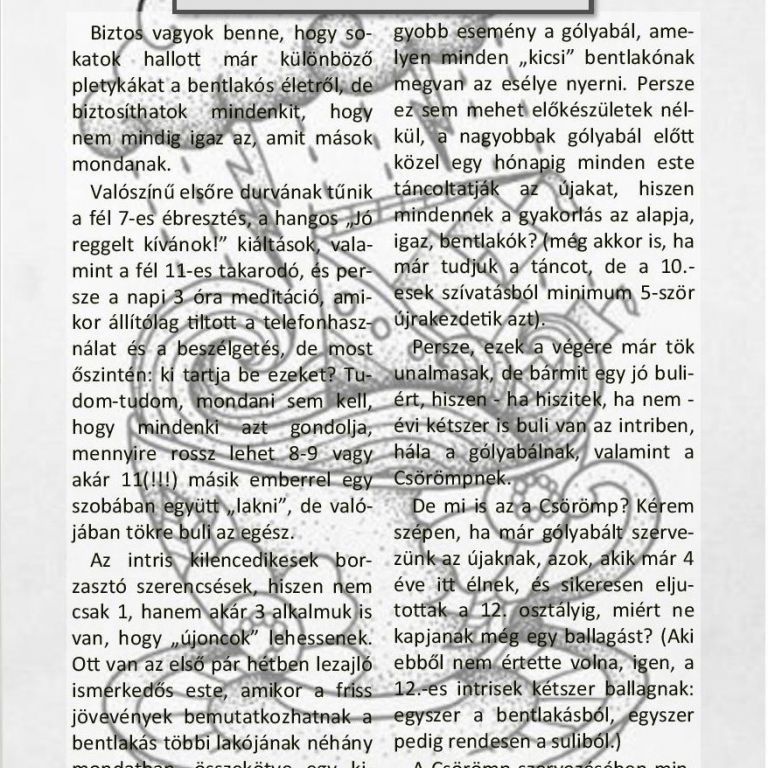 Biztos vagyok benne, hogy so-
katok hallott már különböző
pletykákat a bentlakós életről, de
biztosíthatok mindenkit, hogy
nem mindig igaz az, amit mások
mondanak.
Valószínű elsőre durvának tűnik
a fél 7-es ébresztés, a hangos „Jó
reggelt kívánok!” kiáltások, vala-
mint a fél 11-es takarodó, és per-
sze a napi 3 óra meditáció, ami-
kor állítólag tiltott a telefonhasz-
nálat és a beszélgetés, de most
őszintén: ki tartja be ezeket? Tu-
dom-tudom, mondani sem kell,
hogy mindenki azt gondolja,
mennyire rossz lehet 8-9 vagy
akár 11(!!!) másik emberrel egy
szobában együtt „lakni”, de való-
jában tökre buli az egész.
Az intris kilencedikesek bor-
zasztó szerencsések, hiszen nem
csak 1, hanem akár 3 alkalmuk is
van, hogy „újoncok” lehessenek.
Ott van az első pár hétben lezajló
ismerkedős este, amikor a friss
jövevények bemutatkozhatnak a
bentlakás többi lakójának néhány
mondatban, összekötve egy ki-
gyobb esemény a gólyabál, ame-
lyen minden „kicsi” bentlakónak
megvan az esélye nyerni. Persze
ez sem mehet előkészületek nél-
kül, a nagyobbak gólyabál előtt
közel egy hónapig minden este
táncoltatják az újakat, hiszen
mindennek a gyakorlás az alapja,
igaz, bentlakók? (még akkor is, ha
már tudjuk a táncot, de a 10.-
esek szívatásból minimum 5-ször
újrakezdetik azt).
Persze, ezek a végére már tök
unalmasak, de bármit egy jó buli-
ért, hiszen - ha hiszitek, ha nem -
évi kétszer is buli van az intriben,
hála a gólyabálnak, valamint a
Csörömpnek.
De mi is az a Csörömp? Kérem
szépen, ha már gólyabált szerve-
zünk az újaknak, azok, akik már 4
éve itt élnek, és sikeresen elju-
tottak a 12. osztályig, miért ne
kapjanak még egy ballagást? (Aki
ebből nem értette volna, igen, a
12.-es intrisek kétszer ballagnak:
egyszer a bentlakásból, egyszer
pedig rendesen a suliból.)
A Csörömp szervezésében min-